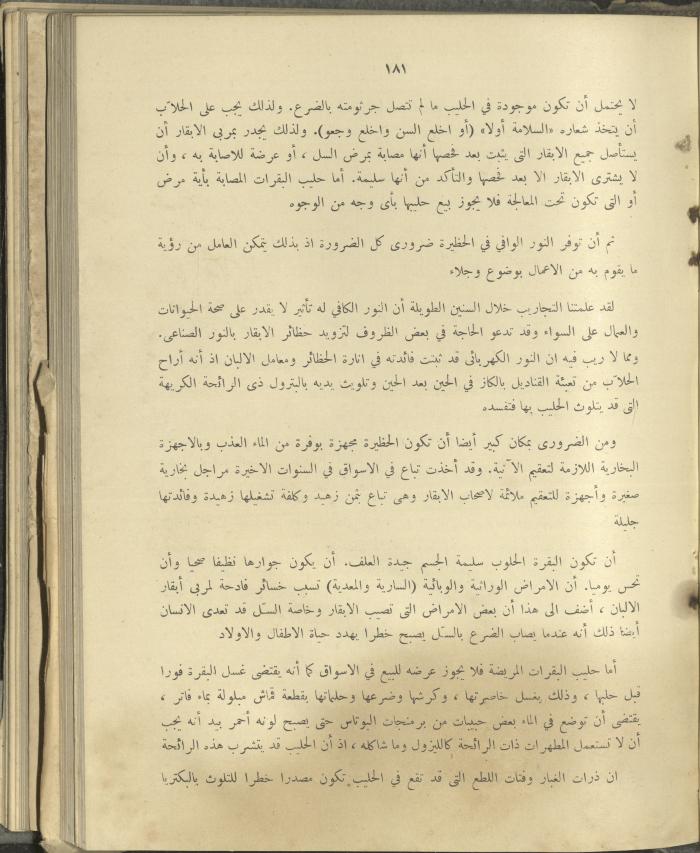 ١٨١
لا يحتمل أن تكون موجودة في الحليب ما لم تتصل جرثومته بالضرع. ولذلك يجب على الحلاّب
أن يتخذ شعاره «السلامة أولا» (أو اخلع السن واخلع وجعو). ولذلك يجدر بمربى الابقار أن
يستأصل جميع الابقار التى يثبت بعد فحصها أنها مصابة بمرض السل ، أو عرضة للاصابة به ، وأن
لا يشترى الابقار الا بعد فحصها والتأكد من أنها سليمة. أما حليب البقرات المصابة بأية مرض
أو التى تكون تحت المعالجة فلا يجوز بيع حليبها بأى وجه من الوجوه
ثم أن توفر النور الوافي في الحظيرة ضرورى كل الضرورة اذ بذلك يتمكن العامل من رؤية
ما يقوم به من الاعمال بوضوع وجلاء
لقد علمتنا التجاريب خلال السنين الطويلة أن النور الكافي له تأثير لا يقدر على صحة الحيوانات
والعمال على السواء وقد تدعو الحاجة في بعض الظروف لتزويد حظائر الابقار بالنور الصناعى.
ومما لا ريب فيه ان النور الكهربائى قد ثبتت فائدته في انارة الحظائر ومعامل الالبان اذ أنه أراح
الحلاّب من تعبئة القناديل بالكاز في الحين بعد الحين وتلويث يديه بالبترول ذى الرائحة الكريهة
التى قد يتلوث الحليب بها فتفسده
ومن الضرورى بمكان كبير أيضا أن تكون الحظيرة مجهزة بوفرة من الماء العذب وبالاجهزة
البخارية اللازمة لتعقيم الآنية. وقد أخذت تباع في الاسواق في السنوات الاخيرة مراجل بخارية
صغيرة وأجهزة للتعقيم ملائمة لاصحاب الابقار وهى تباع بثمن زهيد وكلفة تشغيلها زهيدة وفائدتها
جليلة
أن تكون البقرة الحلوب سليمة الجسم جيدة العلف. أن يكون جوارها نظيفا صحيا وأن
تحس يوميا. أن الامراض الوراثية والوبائية (السارية والمعدية) تسبب خسائر فادحة لمربى أبقار
الالبان ، أضف الى هذا أن بعض الامراض التى تصيب الابقار وخاصة السل قد تعدى الانسان
أيضا ذلك أنه عندما يصاب الضرع بالسل يصبح خطرا يهدد حياة الاطفال والاولاد
أما حليب البقرات المريضة فلا يجوز عرضه للبيع في الاسواق كما أنه يقتضى غسل البقرة فورا
قبل حلبها ، وذلك بغسل خاصرتها ، وكرشها وضرعها وحلماتها بقطعة قماش مبلولة بماء فاتر ،
يقتضى أن توضع في الماء بعض حبيبات من برمنجات البوتاس حتى يصبح لونه أحمر بيد أنه يجب
أن لا تستعمل المطهرات ذات الرائحة كالليزول وما شاكله ، اذ أن الحليب قد يتشرب هذه الرائحة
ان ذرات الغبار وفتات اللطع التى قد تقع في الحليب تكون مصدرا خطرا للتلوث بالبكتريا